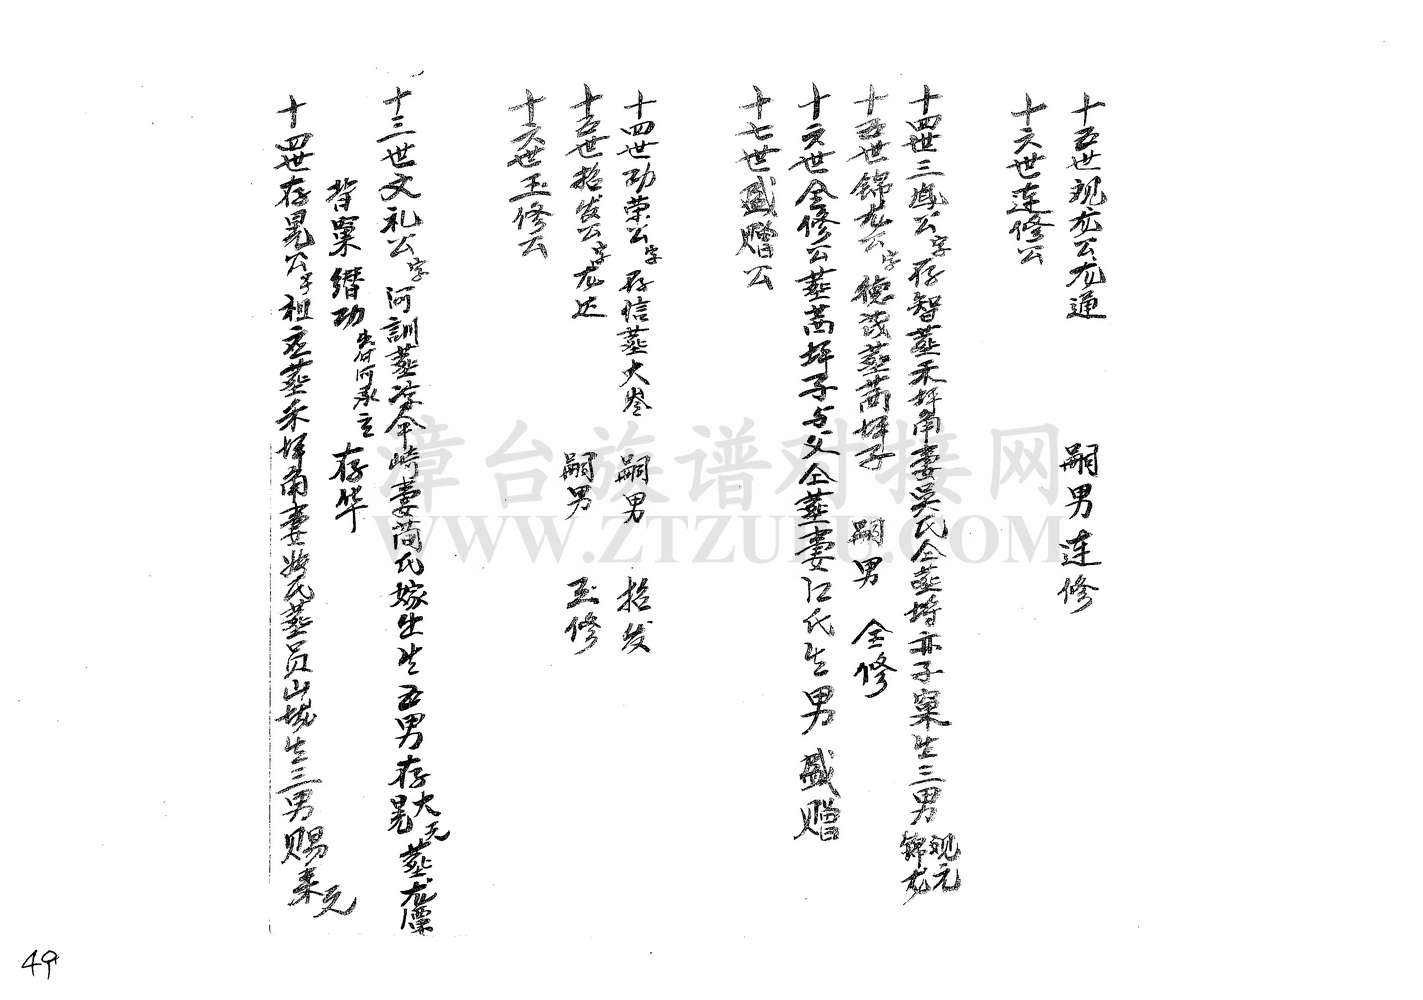 十五世观龙公龙通 嗣男连修
十六世连修公
十四世三凤公字存智葬禾坪角妻吴氏仝葬埁亦子窠生三男锦龙观元
十五世锦龙公字德茂葬茜坪子 嗣男 全修
十六世全修公葬茜坪子与父仝葬妻江氏生男盛赠
十七世盛赠公
十四世功荣公字存信葬大岺 嗣男 招发
十五世招发公字龙达 嗣男 玉修
十六世玉修公
十三世文礼公字河訓葬凉伞崎妻简氏嫁出生五男存晃大元葬龙
背窠缵功出付河承立存华
十四世存晃公字祖立葬禾坪角妻 氏葬员山 生三男赐来元
漳台族谱对接网
WWW.ZTZUPU.COM
49